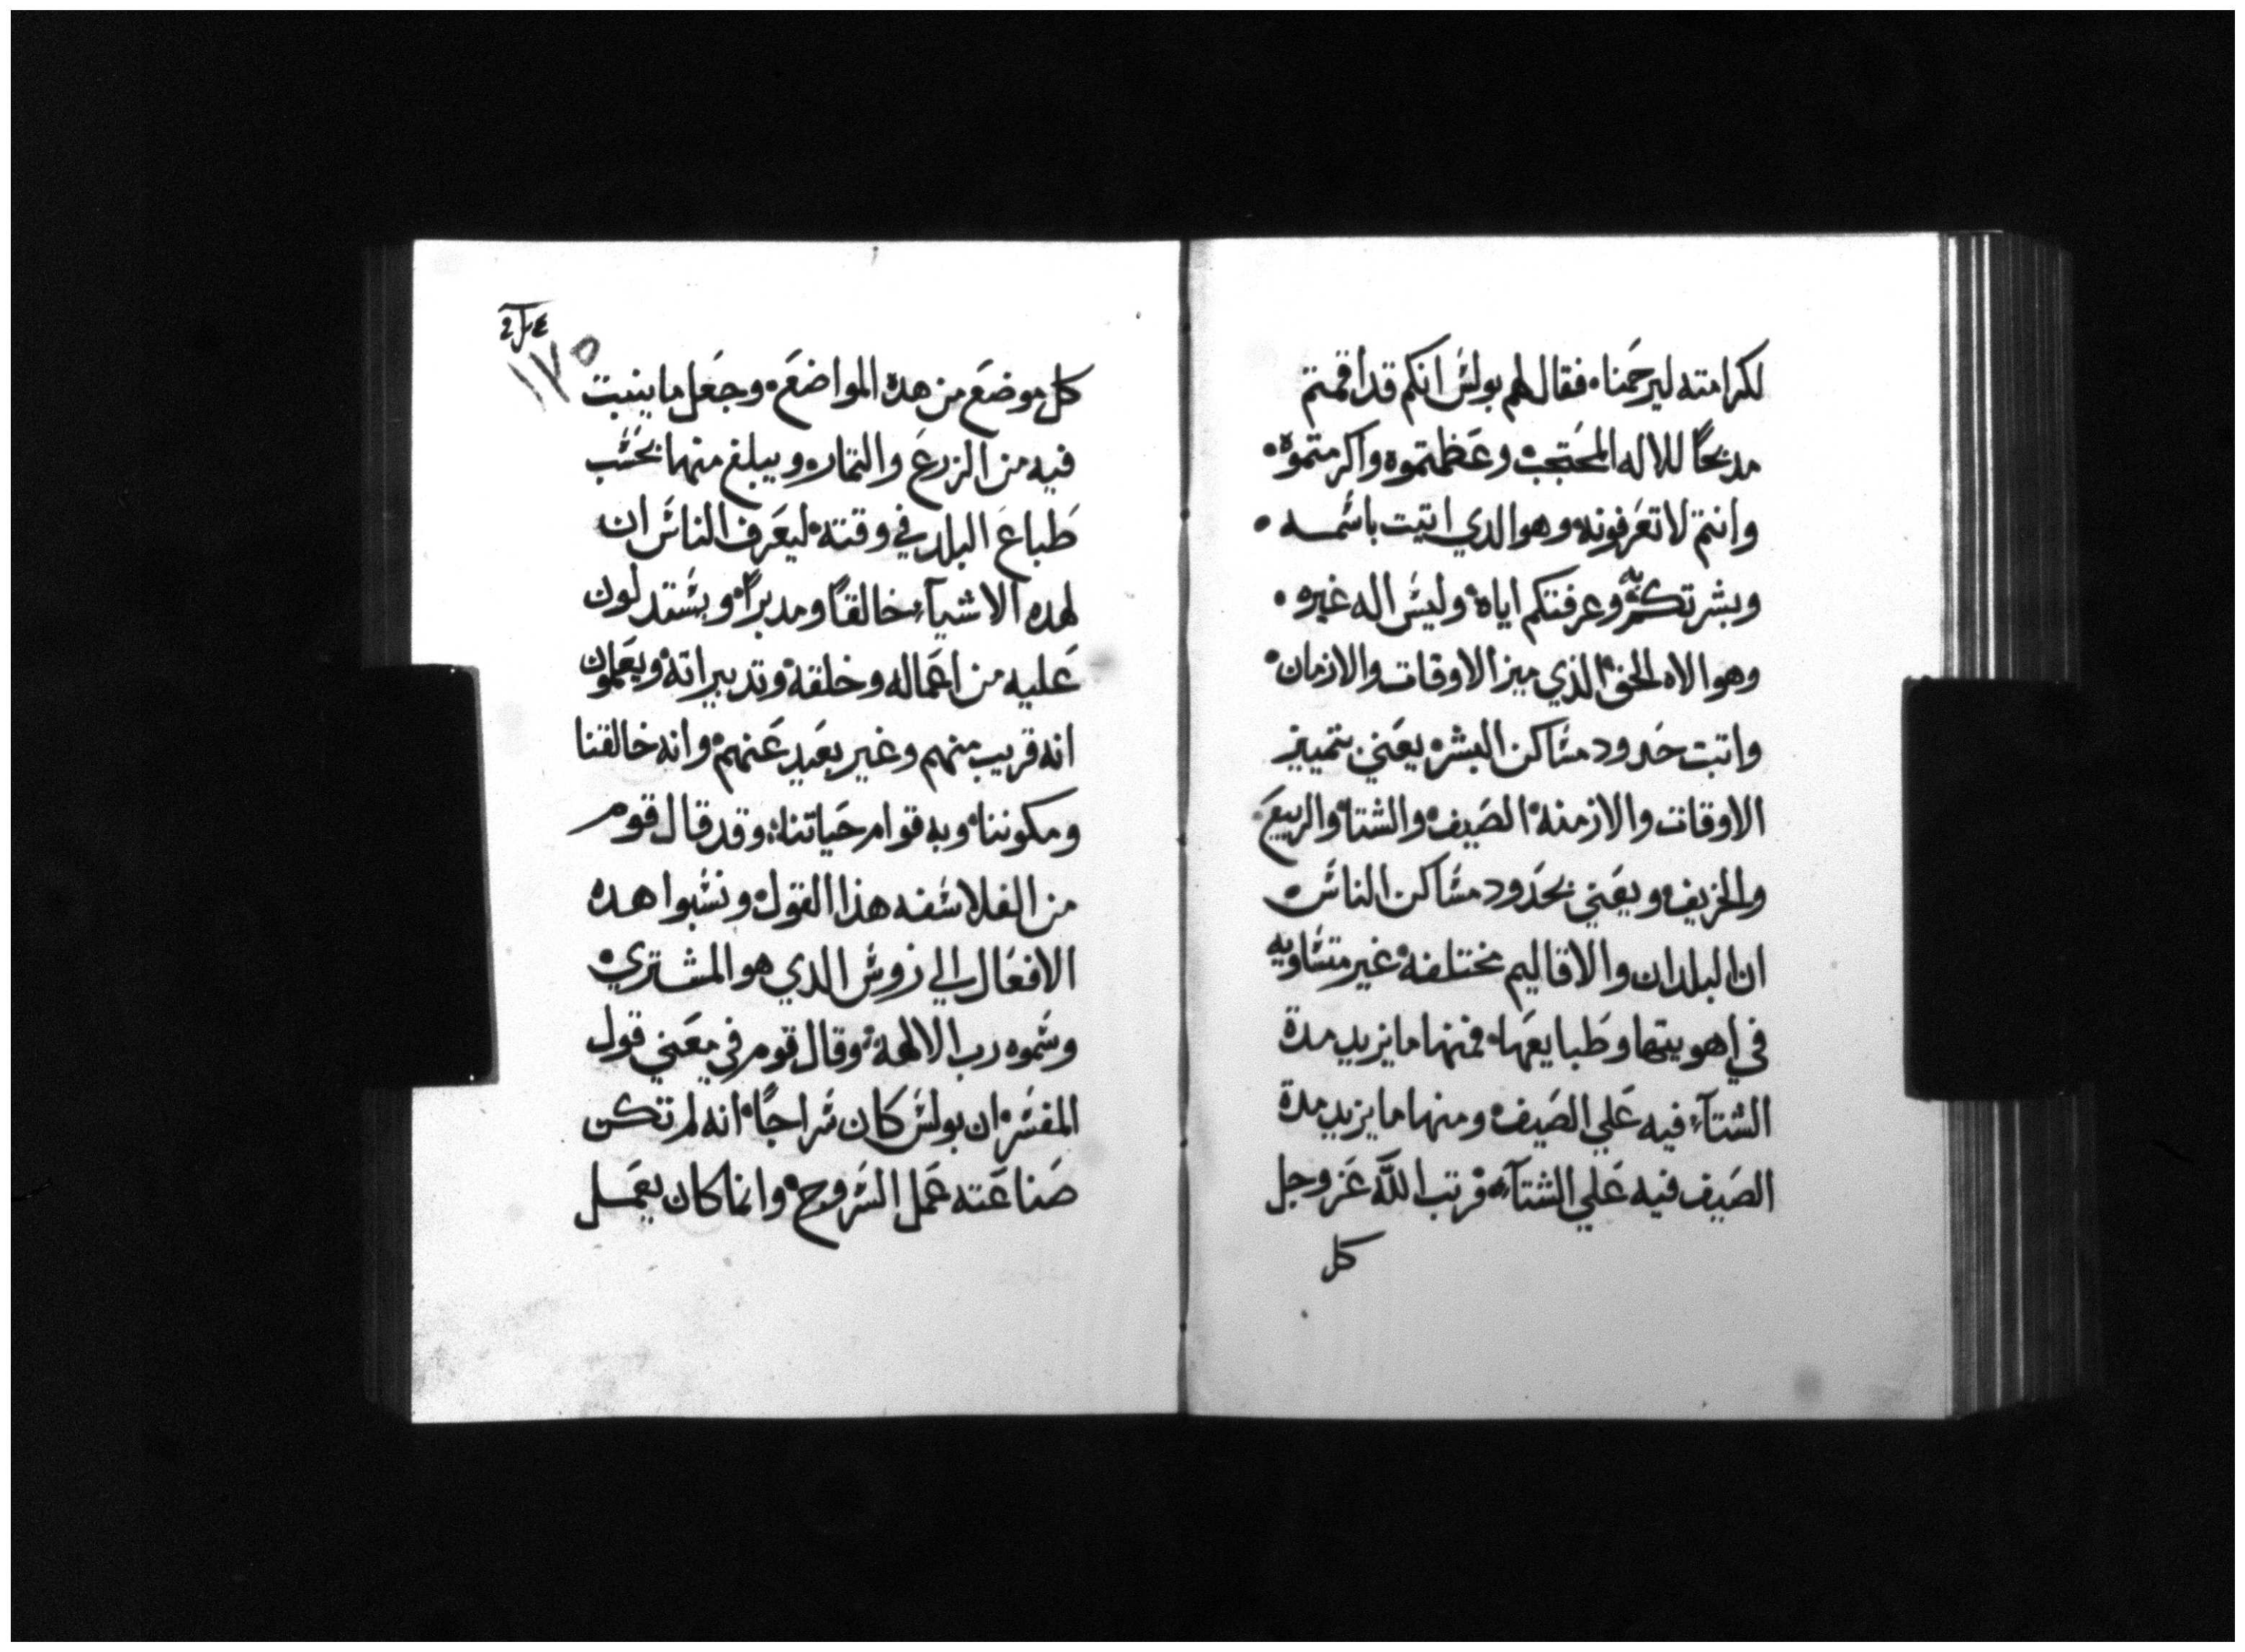 لكرامته ليرحمنا، فقال لهم بولس انكم قد اقمتم
مدبحًا للاله المحتجب وعظمتموه واكرمتموه،
وانتم لا تعرفونه وهو الدي اتيت باسمه،
وبشرتكم به وعرفتكم اياه وليس اله غيره،
وهو الاه الحق الذي ميز الاوقات والازمان،
واتبت حدود مساكن البشر، يعني بتمييز
الاوقات والازمنه الصيف، والشتا، والربيع،
والخريف، ويعني بحدود مساكن الناس
ان البلدان والاقاليم مختلفه غير متساويه
في اهويتها وطبايعها، فمنها ما يزيد مدة
الشتآء فيه علي الصيف، ومنها ما يزيد مدة
الصيف فيه علي الشتآء، فرتب الله عز وجل
كل
كل موضع من هده المواضع، وجعل ما ينبت
فيه من الزرع والتمار، ويبلغ منها بحسب
طباع البلد في وقته، ليعرف الناس ان
لهده الاشيآء خالقًا ومدبرًا، ويستدلون
عليه من اعماله وخلقه، وتدبيراته، ويعلمون
انه قريب منهم وغير بعيد عنهم، وانه خالقنا
ومكوننا، وبه قوام حياتنا، وقد قال قوم
من الفلاسفه هذا القول، ونسبوا هده
الافعال الي زوش الدي هو المشتري،
وسموه رب الالهة، وقال قوم في معني قول
المفسر، ان بولس كان سراجًا، انه لم تكن
صناعته عمل السروج، وانما كان يعمل
١٧٥